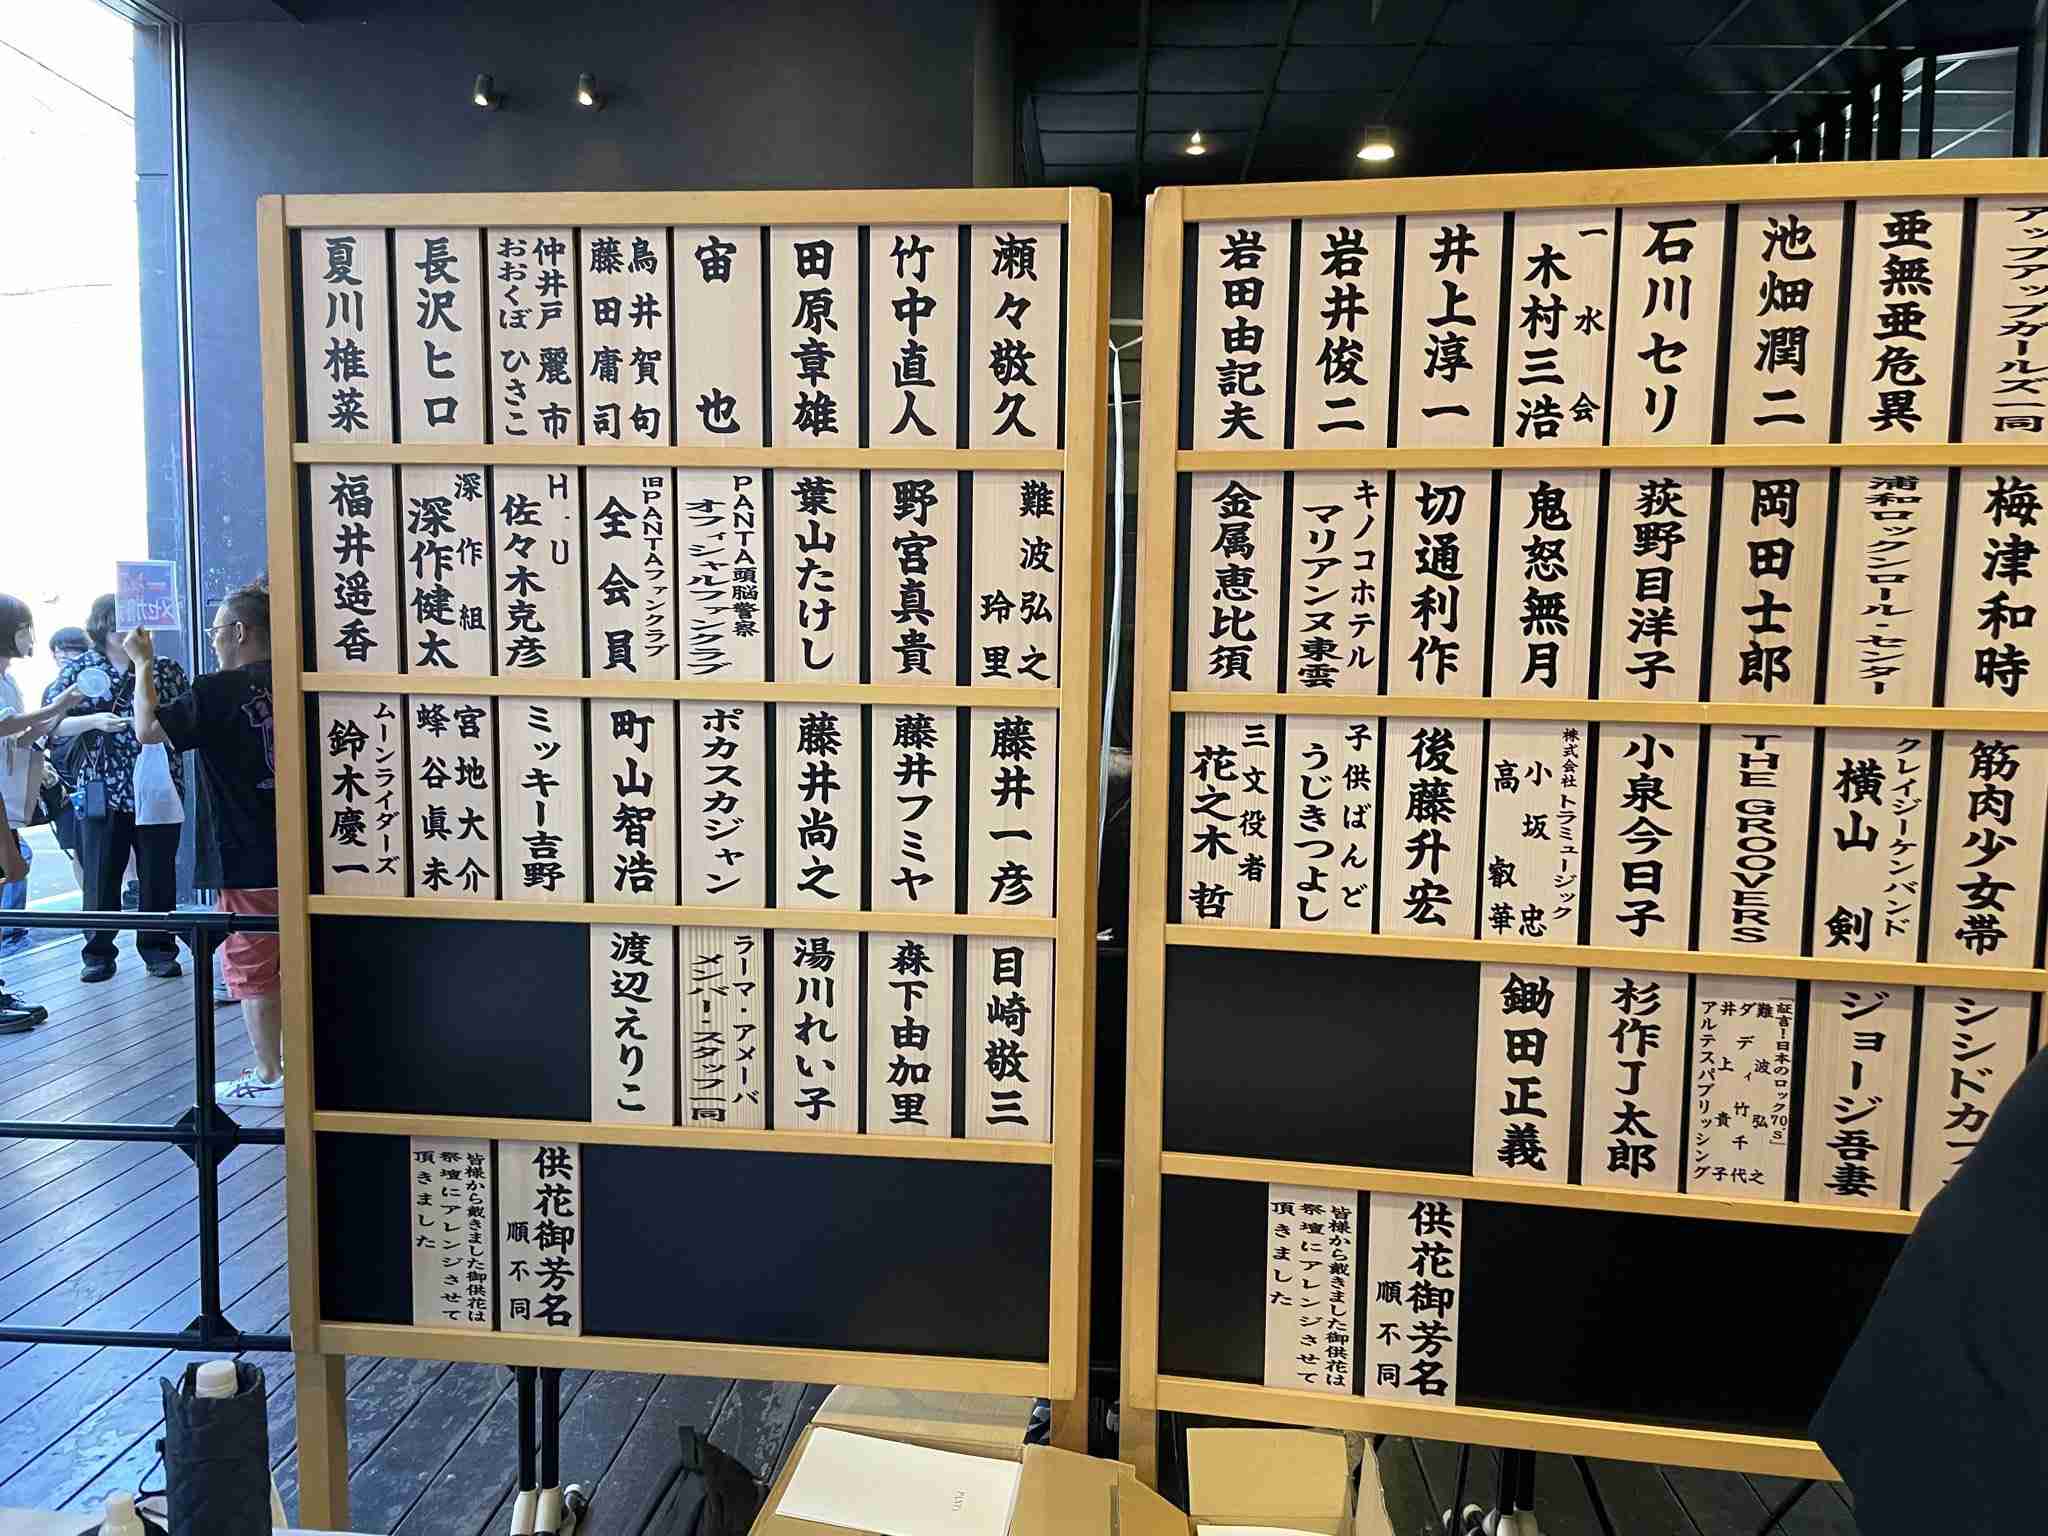 アップアップガールズ一同
亜無亜危異
池畑潤二
石川セリ
一水会
木村三浩
井上淳一
岩井俊二
岩田由記夫
梅津和時
浦和ロックンロール・センター
岡田士郎
荻野目洋子
鬼怒無月
切通利作
キノコホテル
マリアンヌ東雲
金属恵比須
筋肉少女帯
クレイジーケンバンド
横山剣
THE GROOVERS
小泉今日子
株式会社トラミュージック
小坂忠
高叡華
後藤升宏
子供ばんど
うじきつよし
三文役者
花之木哲
シシドカフ
ジョージ吾妻
証言!日本のロック70's」
難波弘之
ダディ竹千代
井上貴子
アルテスパブリッシング
杉作丁太郎
鋤田正義
供花御芳名
順不同
皆様から戴きました御供花は
祭壇にアレンジさせて
頂きました
瀬々敬久
竹中直人
田原章雄
宙也
鳥井賀句
藤田庸司
仲井戸麗市
おおくぼひさこ
長沢ヒロ
夏川椎菜
難波弘之
玲里
野宮真貴
葉山たけし
PANTA頭脳警察
オフィシャルファンクラブ
旧PANTAファンクラブ
全会員
H.U
佐々木克彦
深作組
深作健太
福井遥香
藤井一彦
藤井フミヤ
藤井尚之
ポカスカジャン
町山智浩
ミッキー吉野
宮地大介
蜂谷眞未
ムーンライダーズ
鈴木慶一
目崎敬三
森下由加里
湯川れい子
ラーマ・アメーバ
メンバー・スタッフ一同
渡辺えりこ
供花御芳名
順不同
皆様から戴きました御供花は
祭壇にアレンジさせて
頂きました